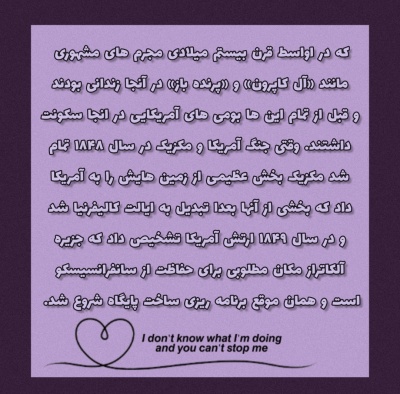 که در اواسط قرن بیستم میلادی مجرم های مشهوری
مانند «آل کاپرون» و «پرنده باز» در آنجا زندانی بودند
و قبل از تمام این ها بومی های آمریکایی در انجا سکونت
داشتند. وقتی جنگ آمریکا و مکزیک در سال ۱۸۴۸ تمام
شد مکزیک بخش عظیمی از زمین هایش را به آمریکا
داد که بخشی از آنها بعدا تبدیل به ایالت کالیفرنیا شد
و در سال ۱۸۴۹ ارتش آمریکا تشخیص داد که جزیره
آلکاتراز مکان مطلوبی برای حفاظت از سانفرانسیسکو
است و همان موقع برنامه ریزی ساخت پایگاه شروع شد.
I don't know what I'm doing
and you can't stop me